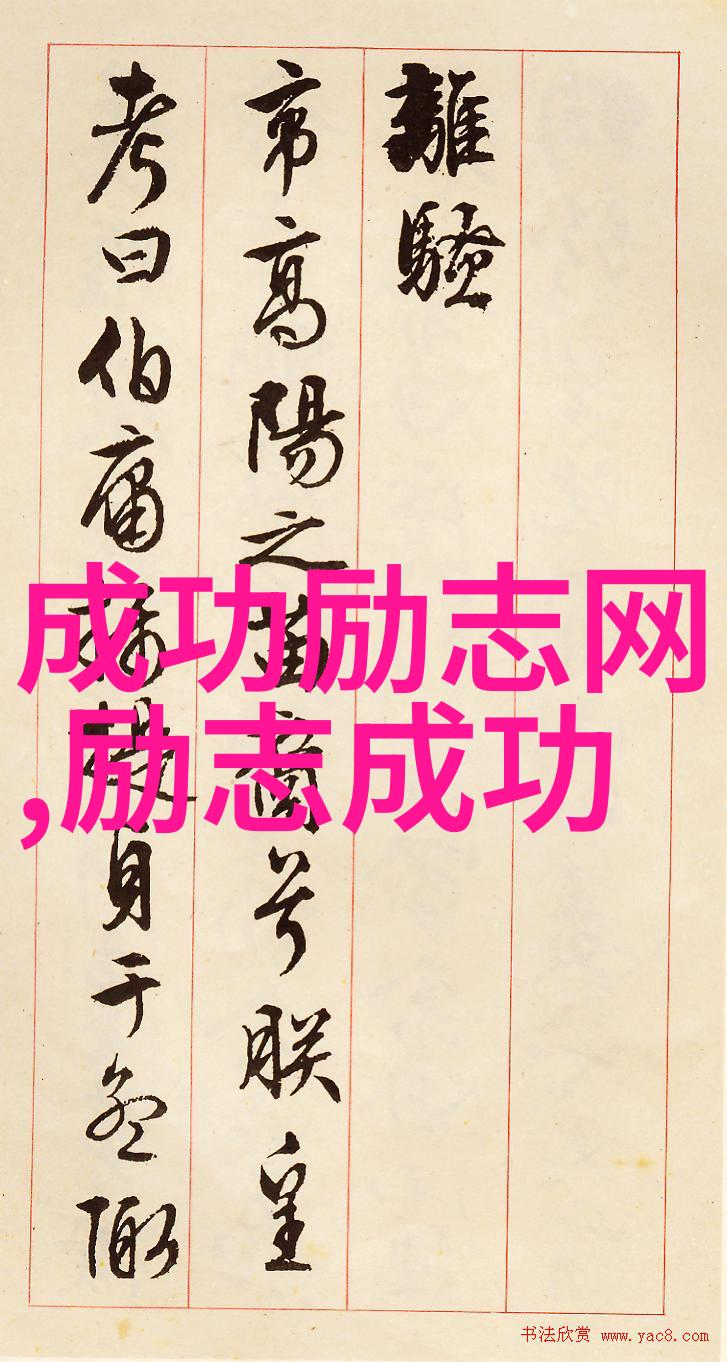 離騷
帝高陽之苗裔兮朕皇
考曰伯庸攝提貞于孟陬
成功励志网
,励志成功
书法欣赏 www.yac8.com